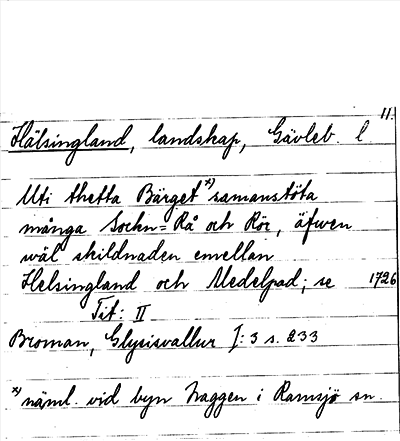 11.
Hälsingland, landskap, Gävleb. l
Uti thetta Bärget *) samanstöta
många Sochn=Rå och Rör, äfwen
wäl skildnaden emellan
Helsingland och Medelpad; se 1726
Tit: II
Broman, Glysisvallur I: 3 s. 233
*) näml. vid byn Haggen i Ramsjö sn.